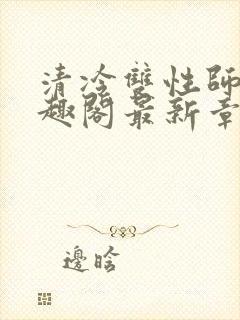 清冷雙性師
趣閣最新章
邊晗